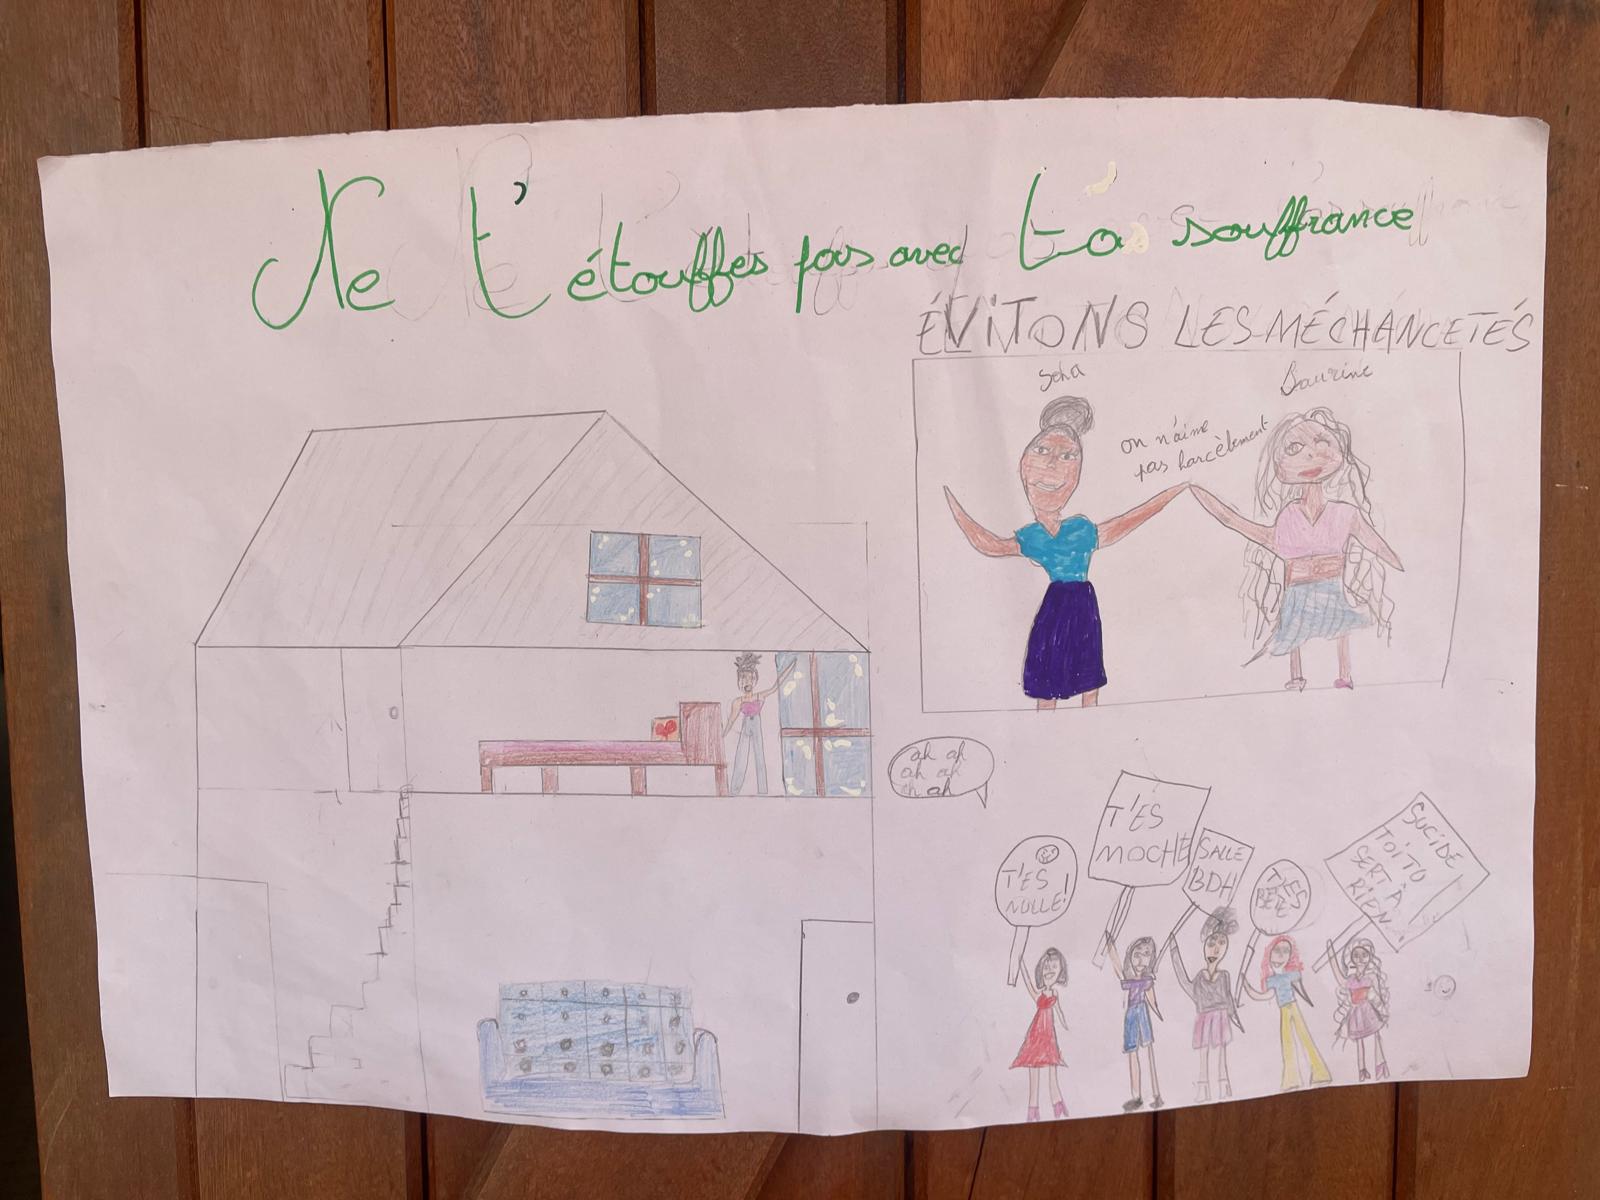 Ne t'étouffes pas avec ta souffrance
ÉVITONS LES MÉCHANCETÉS
Saurine
on n'aime
pas harcèlement
ah ah
ah ah
ah ah
T'ES
NULLE!
T'ES
MOCHE
SALLE
BDH
T'ES
BÊTE
SUCIDE
TOI TU
SERT À
RIEN!